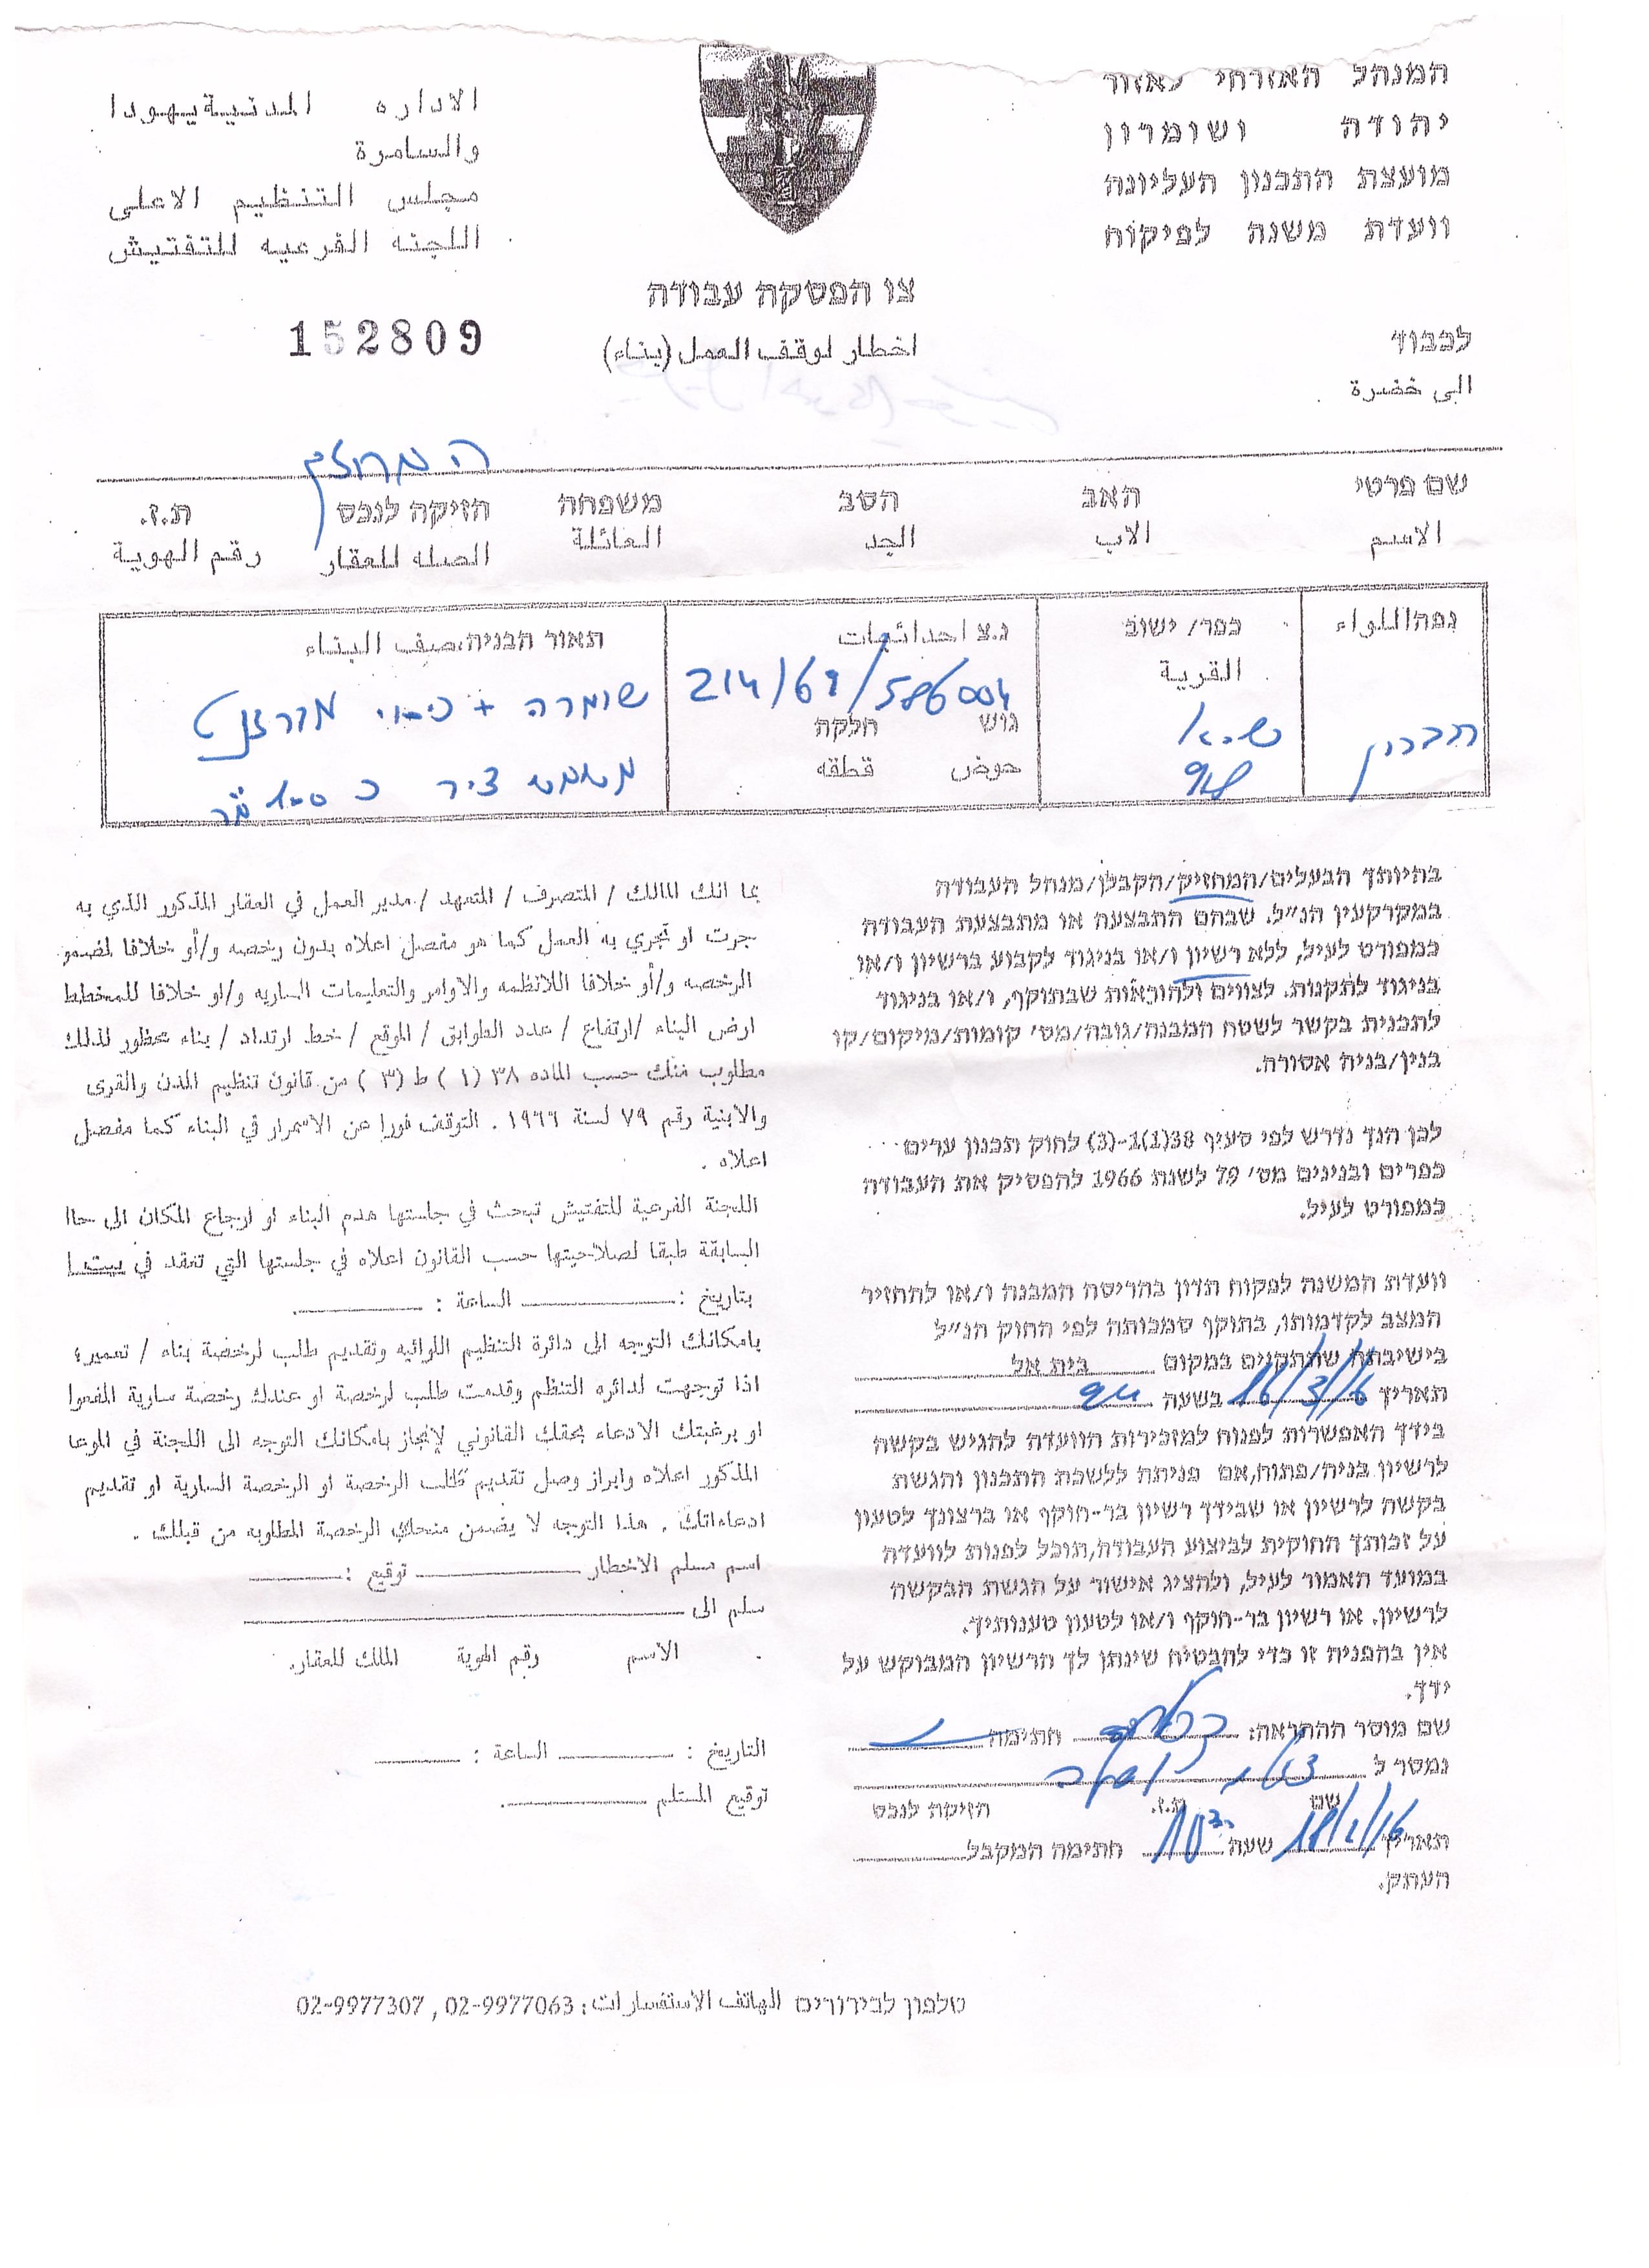 המנהל האזרחי לאזור
יהודה ושומרון
מועצת התכנון העליונה
וועדת משנה לפיקוח
الاداره المدنيية يهودا
والسامرة
مجلس التنظيم الاعلى
اللجنه الفرعيه للتفتيش
צו הפסקה עבודה
اخطار لوقف العمل (بناء)
152809
לכבוד
الى خضرة
המחזיק
שם פרטי האב הסב משפחה חזיקה לנכס ת.ז.
الاسم الاب الجد العائلة الصله للعقار رقم الهوية
נפה اللواء כפר/ ישוב נ.צ احداثيات תאור הבניה صيف البناء
القرية
חברון
גוש חלקה
حوض قطقه
שומרה +
בהיותך הבעלים/המחזיק/הקבלן/מנהל העבודה
במקרקעין הנ״ל. שבהם התבצעה או מתבצעת העבודה
כמפורט לעיל, ללא רשיון ו/או בניגוד לקבוע ברשיון ו/או
בניגוד לתקנות. לצווים ולהוראות שבתוקף, ו/או בניגוד
לתכנית בקשר לשטח המבנה/גובה/מס׳ קומות/מיקום/קו
בנין/בניה אסורה.
לכן הנך נדרש לפי סעיף 38(1)1-(3) לחוק תכנון ערים
כפרים ובנינים מס׳ 79 לשנת 1966 להפסיק את העבודה
כמפורט לעיל.
וועדת המשנה לפקוח תדון בהריסת המבנה ו/או להחזיר
המצב לקדמותו, בתוקף סמכותה לפי החוק הנ״ל
בישיבתה שתתקיים במקום בית אל
תאריך 16/3/16 בשעה
בידך האפשרות לפנות למזכירות הוועדה להגיש בקשה
לרשיון בניה/פתוח,אם פניתה ללשכת התכנון והגשת
בקשה לרשיון או שבידך רשיון בר-חוקף או ברצונך לטעון
על זכותך החוקית לביצוע העבודה,תוכל לפנות לוועדה
במועד האמור לעיל, ולהציג אישור על הגשת הבקשה
לרשיון. או רשיון בר-חוקף ו/או לטעון טענותיך.
אין בהפניה זו כדי להבטיח שינתן לך הרשיון המבוקש על
ידך.
שם מוסר ההתראה: חתימה
נמסר ל
שם ת.ז. חזיקה לנכס
תאריך שעה חתימה המקבל
העתק.
بما انك المالك / المتصرف / المتعهد / مدير العمل في العقار المذكور الذي به
جرت او تجري به العمل كما هو مفصل اعلاه بدون رخصه و/أو خلافا لمضمو
الرخصه و/أو خلافا اللانظمه والاوامر والتعليمات الساريه و/او خلافا للمخطط
ارض البناء /ارتفاع / عدد الطوابق / الموقع / خط ارتداد / بناء محظور لذلك
مطلوب منك حسب الماده ٣٨ (١) ط (٣) من قانون تنظيم المدن والقرى
والابنية رقم ٧٩ لسنة ١٩٦٦ . التوقف فورا عن الاسمرار في البناء كما مفصل
اعلاه .
اللجنة الفرعية للتفتيش تبحث في جلستها هدم البناء او ارجاع المكان الى حاا
السابقة طبقا لصلاحيتها حسب القانون اعلاه في جلستها التي تعقد في
بتاريخ : الساعة :
بامكانك التوجه الى دائرة التنظيم اللوائيه وتقديم طلب لرخصة بناء / تعمير؛
اذا توجهت لدائره التنظم وقدمت طلب لرخصة او عندك رخصة سارية المفعوا
او برغبتك الادعاء بحقك القانوني لإنجاز بامكانك التوجه الى اللجنة في الموعا
المذكور اعلاه وابراز وصل تقديم طلب الرخصة او الرخصة السارية او تقديم
ادعاءاتك . هذا التوجه لا يضمن منحك الرخصة المطلوبه من قبلك .
اسم مسلم الاخطار توقيع :
سلم الى
الاسم رقم الهوية المالك للعقار.
التاريخ : الساعة :
توقيع المستلم
טלפון לבירורים الهاتف الاستفسارات : 02-9977063 , 02-9977307